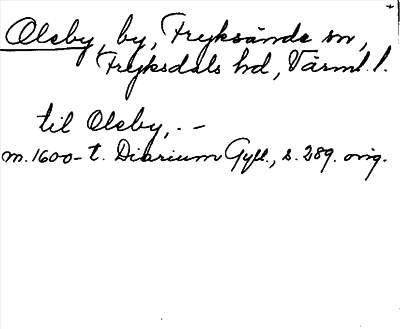 Olsby, by, Fryksände sn,
Fryksdals hd, Värml. l.
til Olsby, . –
m. 1600-t. Diarium Gyll., s. 289. orig.